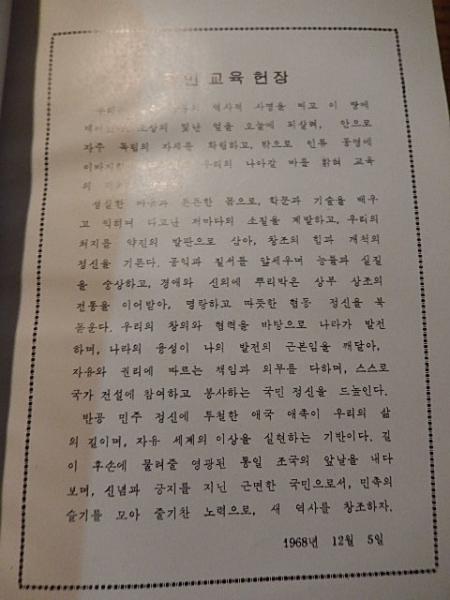 민 교 육 헌 장
역사적 사명을 띠고 이 땅에
조상의 빛난 얼을 오늘에 되살려, 안으로
자주 독립의 자세를 확립하고, 밖으로 인류 공영에
이바지할 우리의 나아갈 바를 밝혀 교육
의
성실한 마음과 튼튼한 몸으로, 학문과 기술을 배우
고 익히며 타고난 저마다의 소질을 계발하고, 우리의
처지를 약진의 발판으로 삼아, 창조의 힘과 개척의
정신을 기른다. 공익과 질서를 앞세우며 능률과 실질
을 숭상하고, 경애와 신의에 뿌리박은 상부 상조의
전통을 이어받아, 명랑하고 따뜻한 협동 정신을 북
돋운다. 우리의 창의와 협력을 바탕으로 나라가 발전
하며, 나라의 융성이 나의 발전의 근본임을 깨달아,
자유와 권리에 따르는 책임과 의무를 다하며, 스스로
국가 건설에 참여하고 봉사하는 국민 정신을 드높인다.
반공 민주 정신에 투철한 애국 애족이 우리의 삶
의 길이며, 자유 세계의 이상을 실현하는 기반이다. 길
이 후손에 물려줄 영광된 통일 조국의 앞날을 내다
보며, 신념과 긍지를 지닌 근면한 국민으로서, 민족의
슬기를 모아 줄기찬 노력으로, 새 역사를 창조하자.
1968년 12월 5일